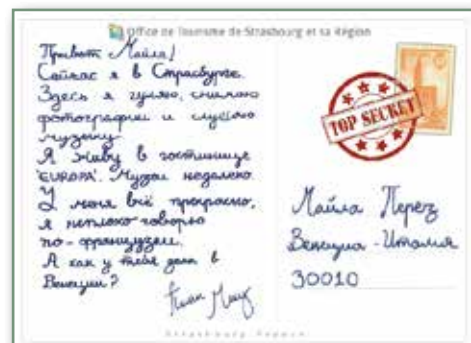 Office de Tourisme de Strasbourg et sa Région
Привет Майла!
Сейчас я в Страсбурге.
Здесь я гуляю, снимаю
фотографии и слушаю
музыку.
Я живу в гостинице
"EUROPA". Музеи недалеко.
У меня всё прекрасно,
я неплохо говорю
по-французски.
А как у тебя дела в
Венеции?
TOP SECRET
Майла Перез
Венеция - Италия
30010
Strasbourg France